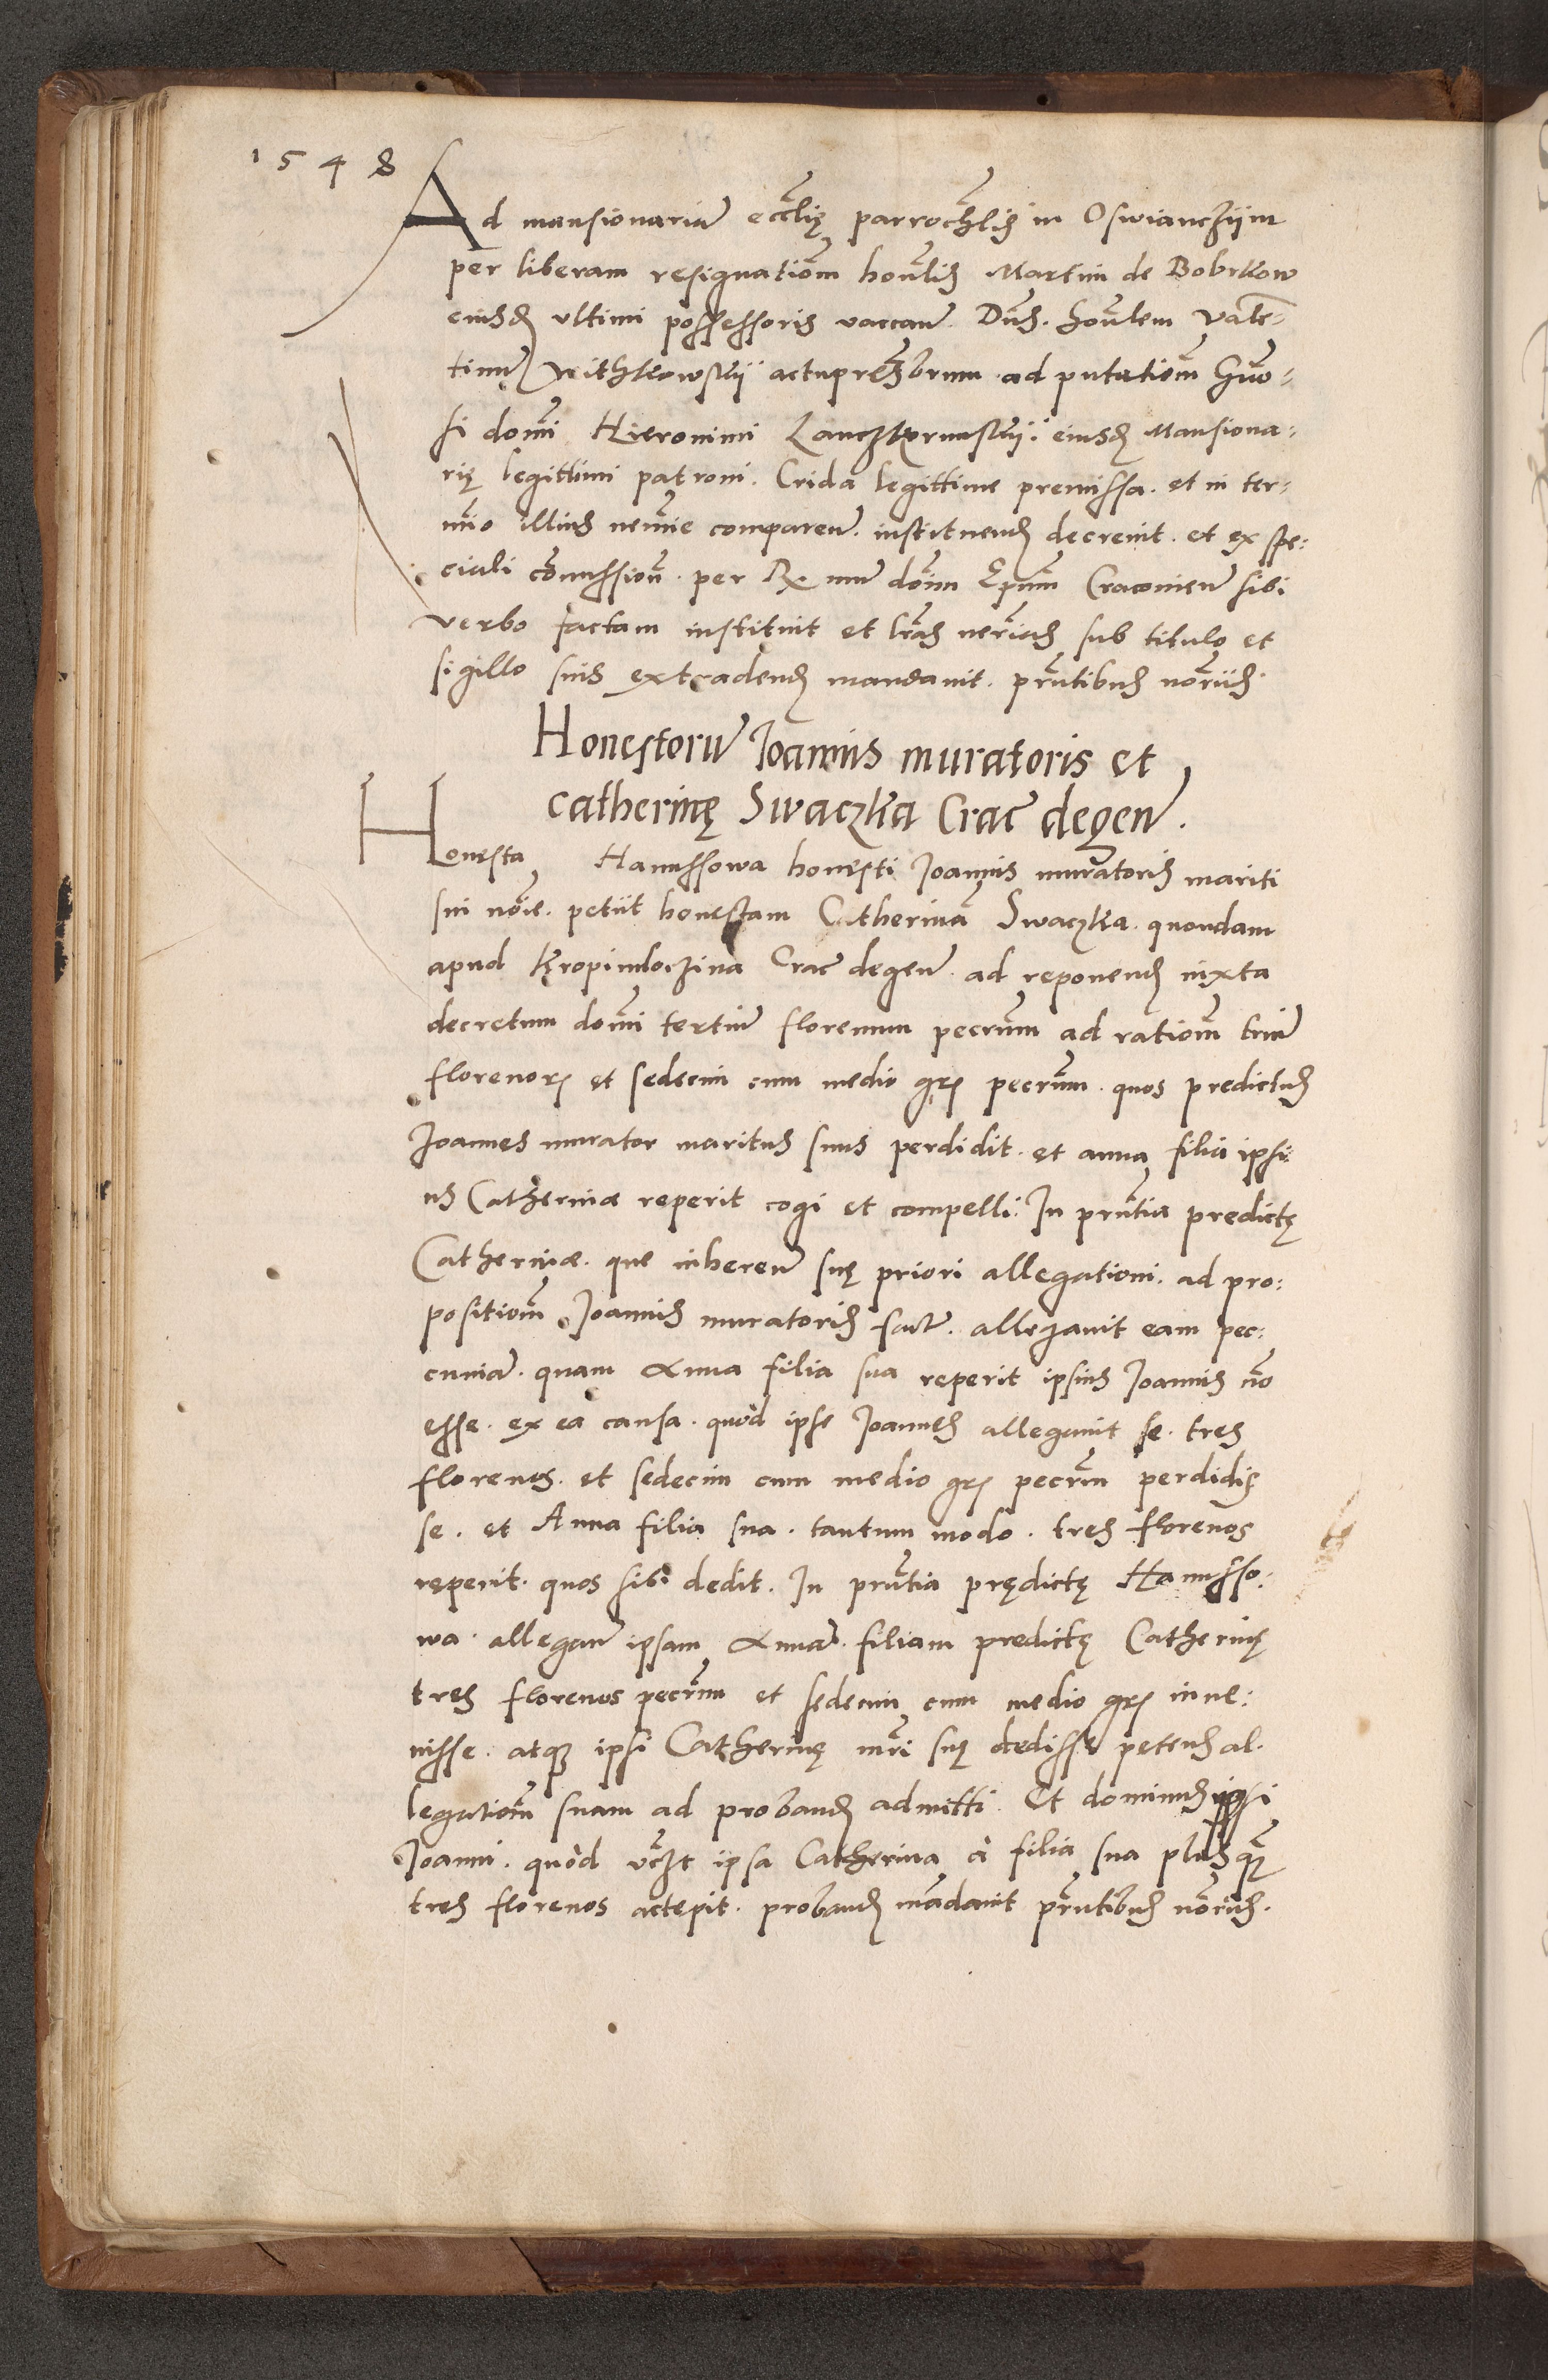 1548
Ad mansionariam ecclię parrochlis in Oswianczijm
per liberam resignationm honlis Martini de Bobrkow
eiusd ultimi possessoris vaccan. Dns. honlem Valen-
tinum Withkowskij actu prsbrum ad pntationm Gno-
si domi Hieronimi Lanczkorunskij: eiusd Mansiona-
rię legittimi patroni. Crida legittime premissa. et in ter-
mio illius nemie comparen. instituend decrevit. et ex spe-
ciali comissione. per R. mum dom Epum Cracovien sibi
verbo factam instituit et lras nerias sub titulo et
sigillo suis extradend mandavit. pntibus noriis.
Honestorum Joannis muratoris et
catherinę Swaczka Crac degen.
Honesta Hanussowa honesti Joannis muratoris mariti
sui noie. petiit honestam Catherinam Swaczka. quondam
apud Kropimloczina Crac degen. ad reponend iuxta
decretum domi tertium florenum pecrum ad rationm trium
florenor et sedecim cum medio gr pecrum. quos predictus
Joannes murator maritus suus perdidit. et anna filia ipsi
us Catherinæ reperit cogi et compelli: In pntia predictę
Catherinæ. que inheren suę priori allegationi. ad pro-
positionm Joannis muratoris factam. allegavit eam pec-
cuniam. quam Anna filia sua reperit ipsius Joannis no
esse. ex ea causa. quod ipse Joannes allegavit se. tres
florenos. et sedecim cum medio gr pecrum perdidis
se. et Anna filia sua. tantum modo. tres florenos
reperit. quos sibi dedit. In pntia prędictę Hanusso-
wa. allegan ipsam Annam. filiam predictę Catherinę
tres florenos pecrum et sedecim cum medio gr inve-
nisse. atq ipsi Catherinę mri suę dedisse petend al-
legationm suam ad proband admitti. Et dominus ipsi
Joanni. quod vczt ipsa Catherina à filia sua plus q
tres florenos accepit. proband madavit pntibus noriis.